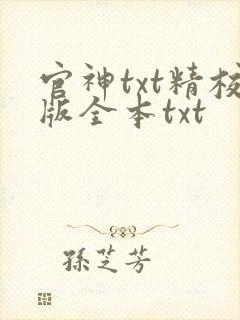 官神txt精校
版全本txt
孫芝芳